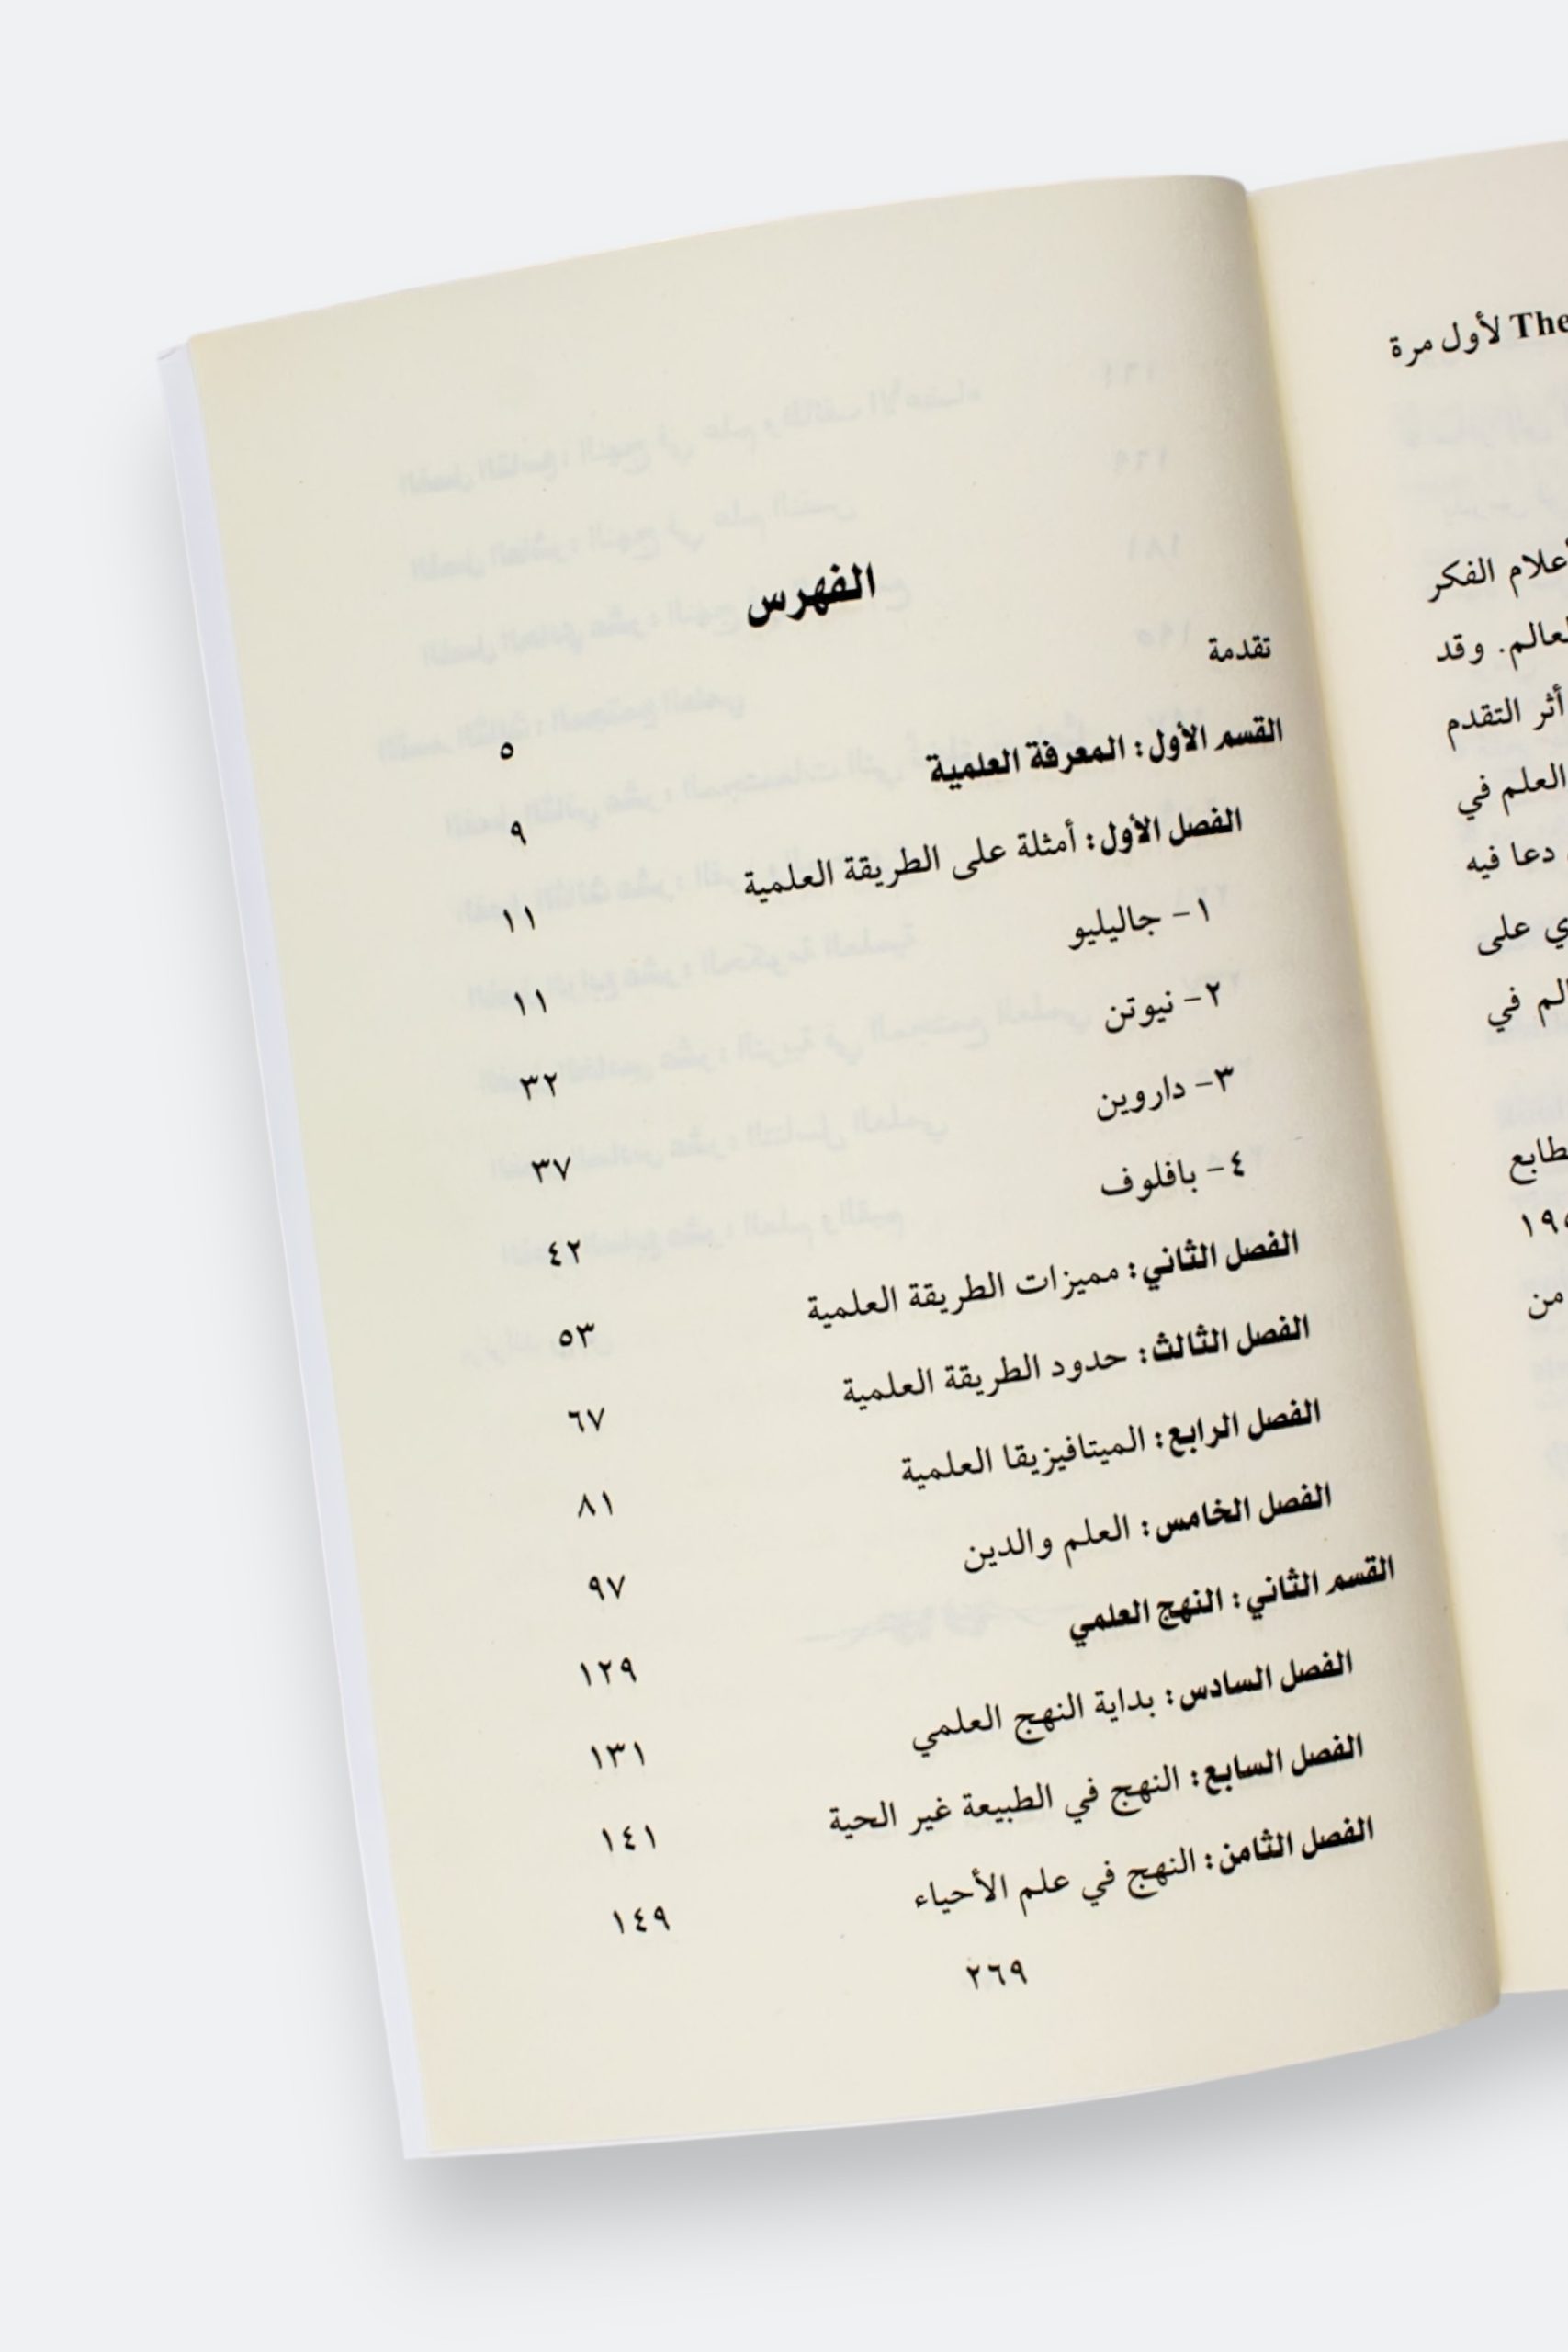 The لأول مرة
أعلام الفكر
لعالم. وقد
أثر التقدم
العلم في
دعا فيه
ي على
الم في
طابع
١٩
من
الفهرس
تقدمة ٥
القسم الأول: المعرفة العلمية ٩
الفصل الأول: أمثلة على الطريقة العلمية ١١
١- جاليليو ١١
٢- نيوتن ٣٢
٣- داروين ٣٧
٤- بافلوف ٤٢
الفصل الثاني: مميزات الطريقة العلمية ٥٣
الفصل الثالث: حدود الطريقة العلمية ٦٧
الفصل الرابع: الميتافيزيقا العلمية ٨١
الفصل الخامس: العلم والدين ٩٧
القسم الثاني: النهج العلمي ١٢٩
الفصل السادس: بداية النهج العلمي ١٣١
الفصل السابع: النهج في الطبيعة غير الحية ١٤١
الفصل الثامن: النهج في علم الأحياء ١٤٩
٢٦٩